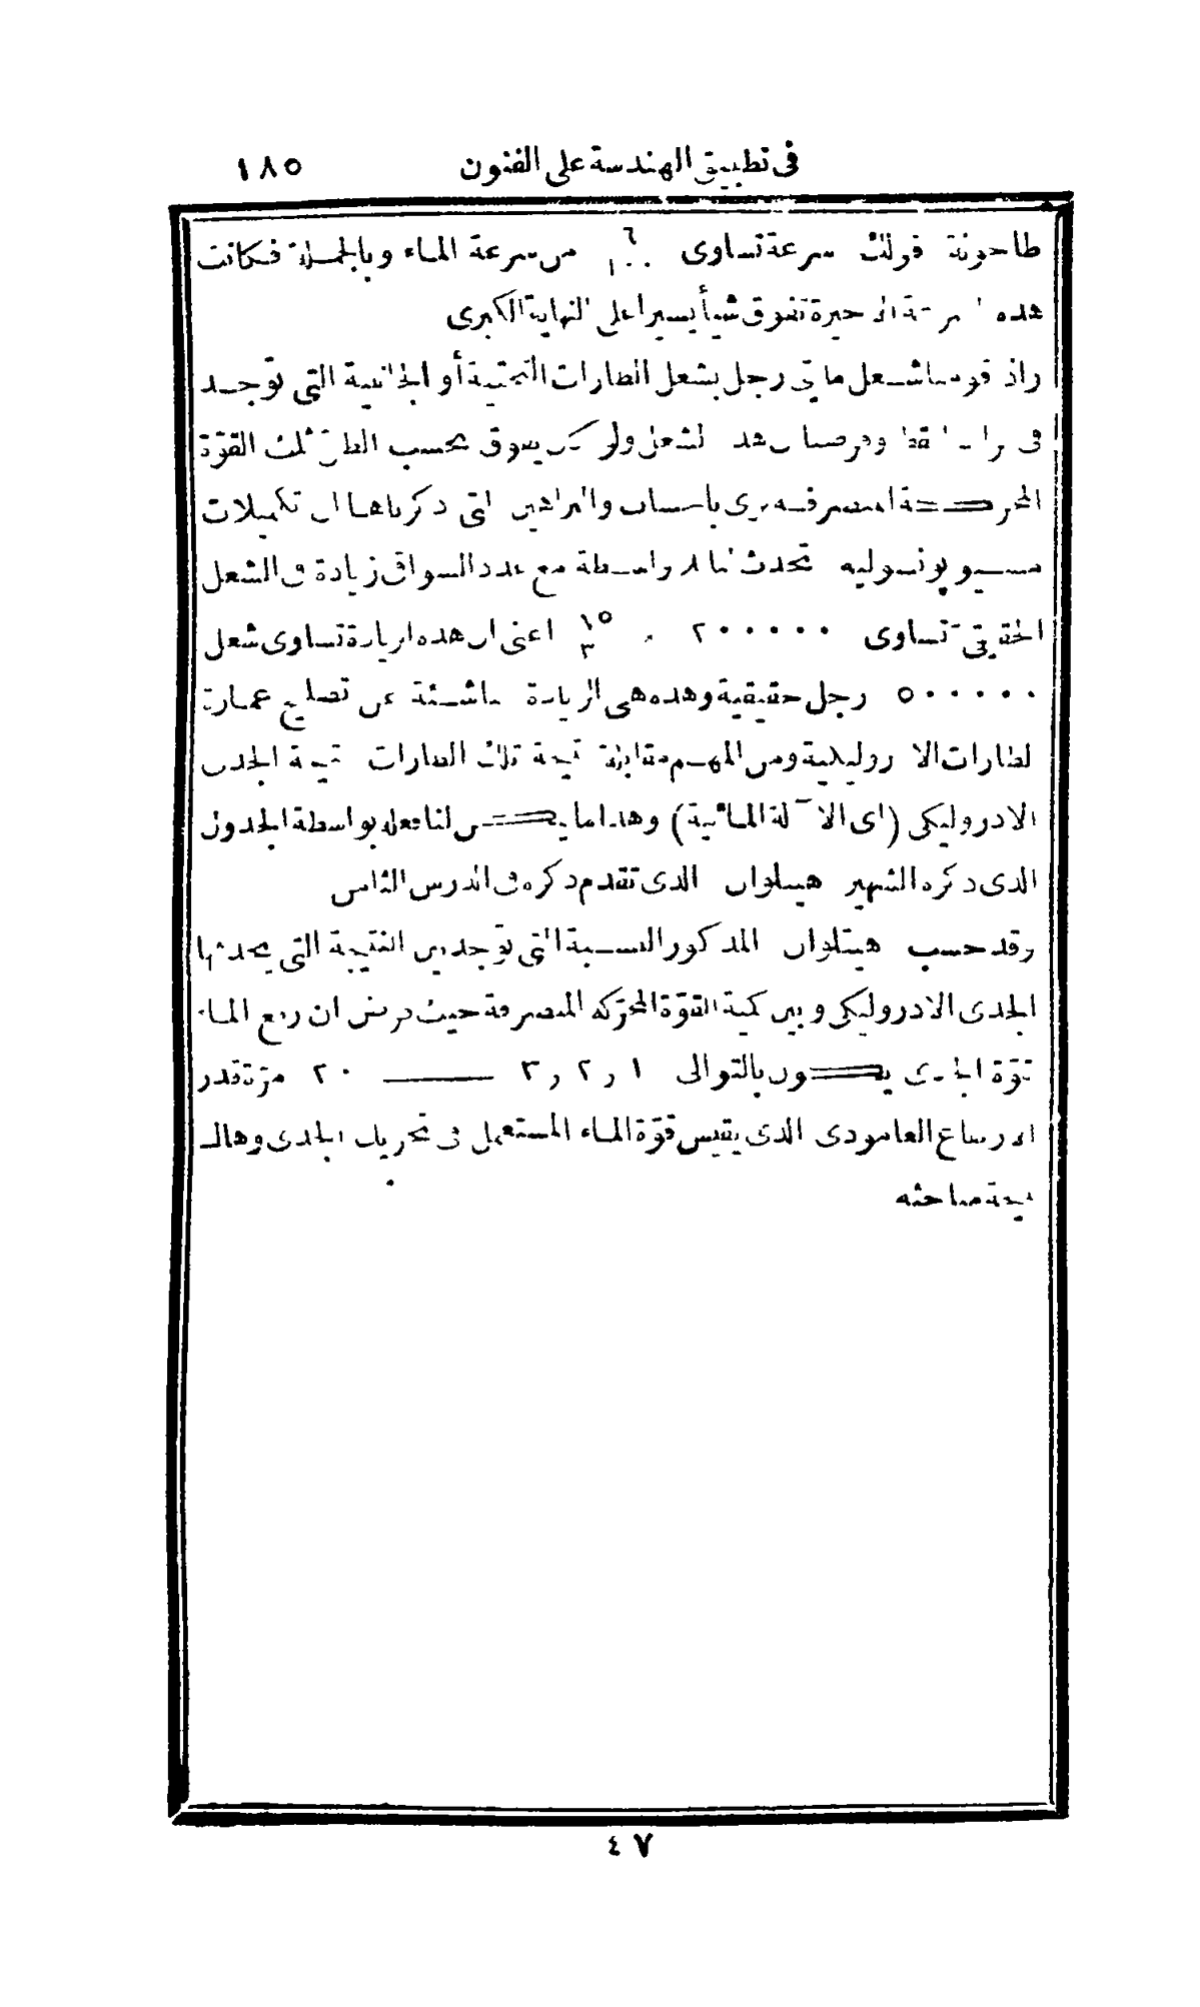 فى تطبيق الهندسة على الفنون ١٨٥
طاحونة فولتك سرعة تساوى من سرعة الماء وبالجملة فكانت
هذه تفوق شيأ يسيرا على النهاية الكبرى
شغل مائتى رجل بشغل الطارات التحتية أو الجانبية التى توجد
فى بحسب ثلث القوّة
المحركة المنصرفة والبراهين التى ذكرناها ان تكميلات
مسيو پونسوليه تحدث مع عدد السواقى زيادة فى الشغل
الحقيقى تساوى ٢٠٠٠٠٠ اعنى ان هذه الزيادة تساوى شغل
٥٠٠٠٠٠ رجل حقيقية وهذه هى الزيادة ناشئة عن تصليح عمارة
الطارات الادروليكية ومن المهم مقابلة نتيجة تلك الطارات بنتيجة الجدى
الادروليكى (اى الآلة المائية) وهذا ما يمكن لنا فعله بواسطة الجدول
الذى ذكره الشهير هيتلوان الذى تقدم ذكره فى الدرس الثامن
وقد حسب هيتلوان المذكور النسبة التى توجد بين النتيجة التى يحدثها
الجدى الادروليكى وبين كمية القوّة المحرّكه المنصرفة حيث فرض ان رفع الماء
بقوّة الجدى يكون بالتوالى ١ , ٢ , ٣ ــــــ ٢٠ مرّة قدر
الارتفاع العامودى الذى يقيس قوّة الماء المستعمل فى تحريك الجدى وهاك
نتيجة مباحثه
٤٧